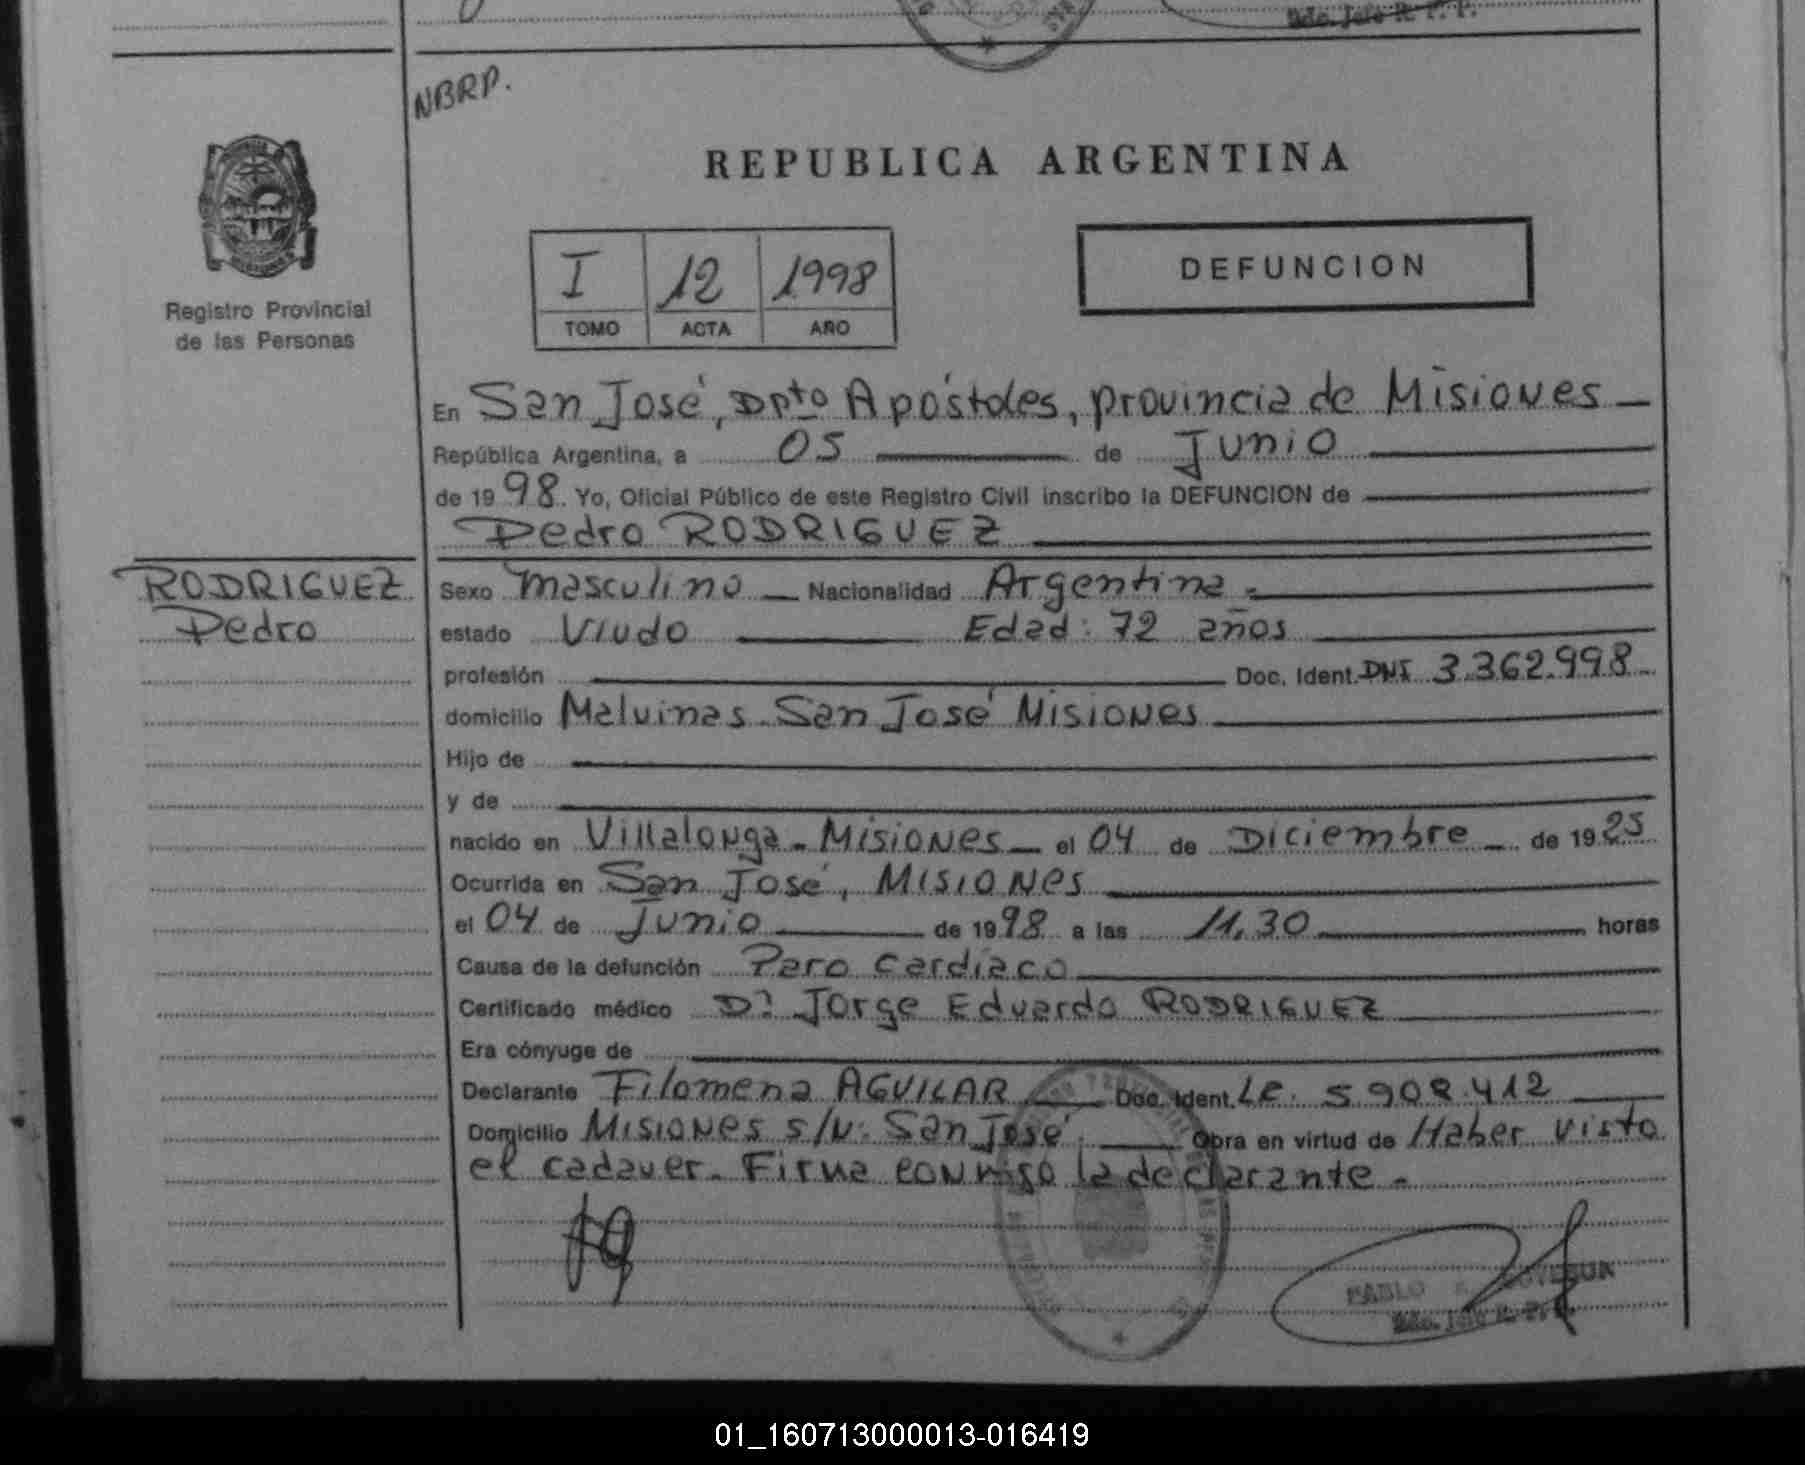 Sdo. Jefe R. P. P.
NBRP.
REPUBLICA ARGENTINA
I 12 1998
TOMO ACTA AÑO
DEFUNCION
Registro Provincial
de las Personas
En San José, Dpto Apóstoles, provincia de Misiones
República Argentina, a 05 de Junio
de 1998. Yo, Oficial Público de este Registro Civil inscribo la DEFUNCION de
Pedro RODRIGUEZ
RODRIGUEZ
Pedro
Sexo masculino Nacionalidad Argentina.
estado Viudo Edad: 72 años
profesión Doc. Ident. DNI 3.362.998
domicilio Malvinas San José Misiones
Hijo de
y de
nacido en Villalonga - Misiones el 04 de Diciembre de 1925
Ocurrida en San José, Misiones
el 04 de Junio de 1998 a las 11.30 horas
Causa de la defunción Paro cardíaco
Certificado médico Dr. Jorge Eduardo RODRIGUEZ
Era cónyuge de
Declarante Filomena AGUILAR Doc. Ident. LC. 5.902.412
Domicilio Misiones s/n: San José. Obra en virtud de Haber visto
el cadaver. Firma conmigo la declarante.
PABLO
Sdo. Jefe R. P. P.
01_160713000013-016419